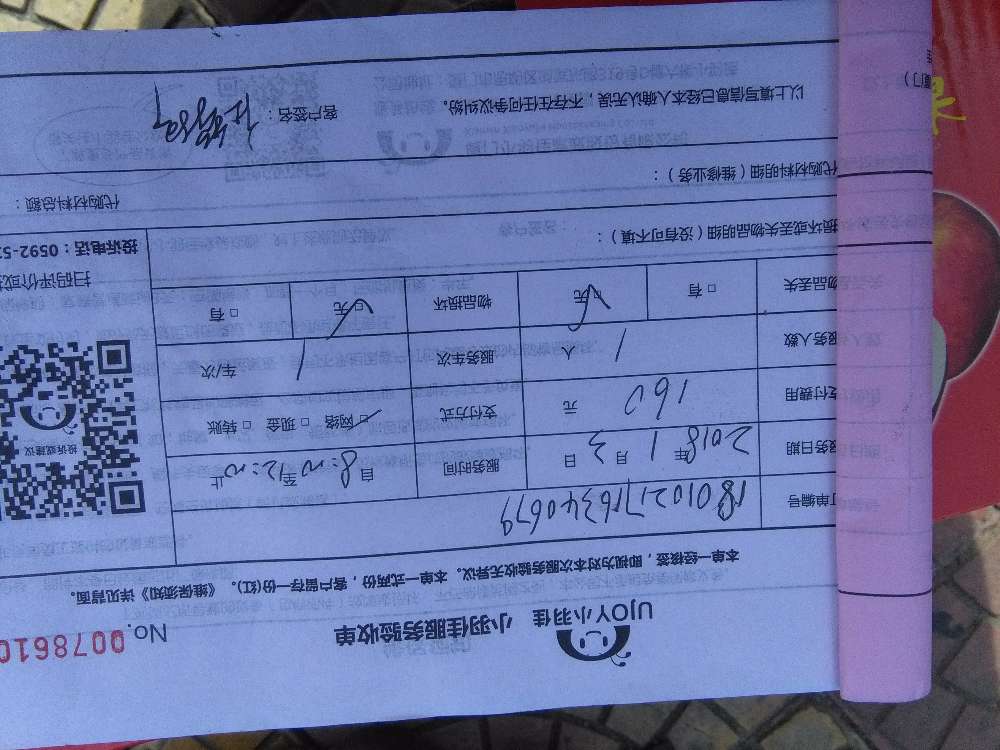 UJOY小羽佳 小羽佳服务验收单 No.0078610
本单一经核签，即视为对本次服务验收无异议。本单一式两份，客户留存一份(红)。《维保须知》详见背面。
订单编号
服务日期 2018年1月3日 服务时间 自8:00至12:00止
支付费用 160元 支付方式 网络 现金 转账
服务人数 1人 服务车次 1车/次
物品丢失 有 无 物品损坏 无 有
投诉或建议
扫码评价或投
投诉电话：0592-5
损坏或丢失物品明细（没有可不填）：
代购材料明细（维修业务）： 代购材料总额：
以上填写信息已经本人确认无误，不存在任何争议纠纷。 客户签名：